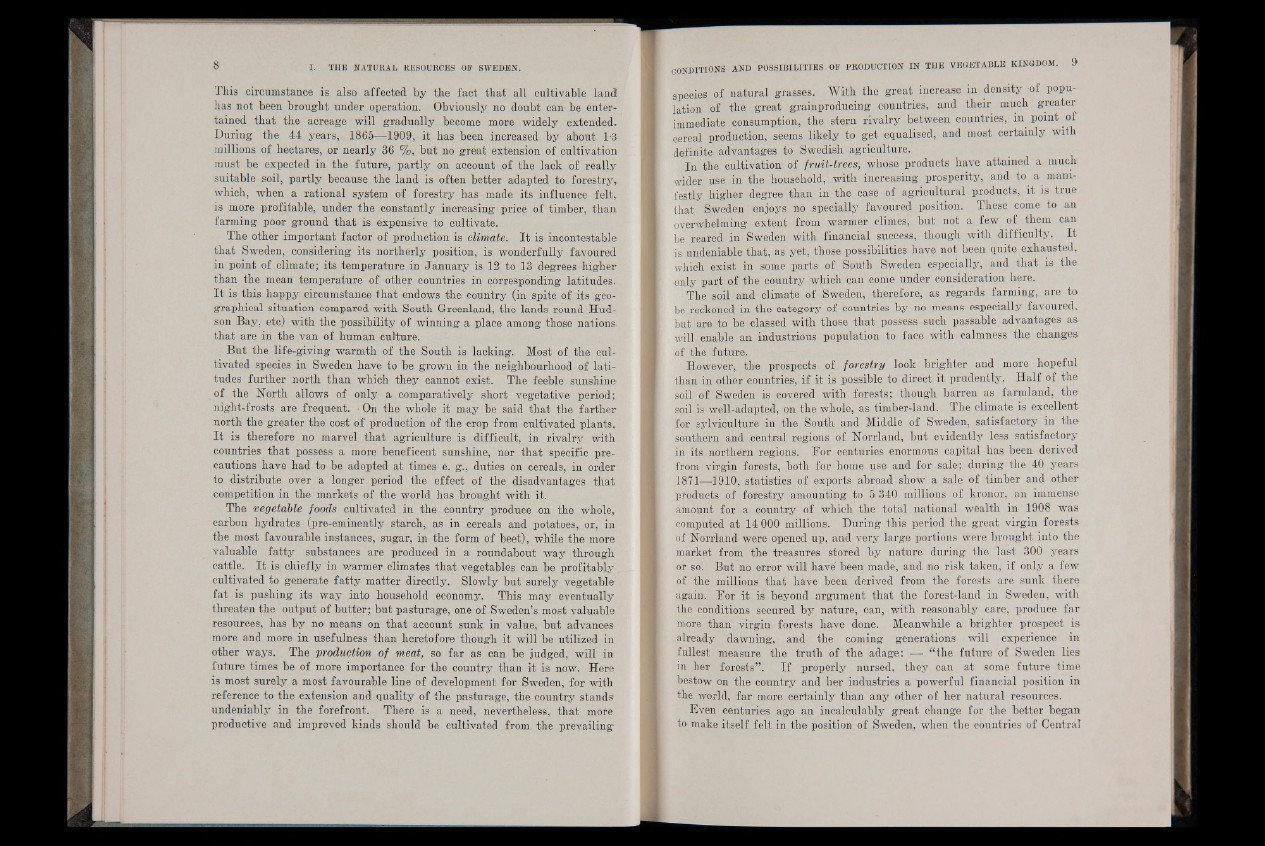 8 I. THE NATURAL RESOURCES OF SWEDEN.
This circumstance is also affected by the fact that all cultivable land
has not been brought under operation. Obviously no doubt can be enter-
tained that the acreage will gradually become more widely extended.
During the 44 years, 1865—1909, it has been increased by about 1·3
millions of hectares, or nearly 36 %, but no great extension of cultivation
must be expected in the future, partly on account of the lack of really
suitable soil, partly because the land is often better adapted to forestry,
which, when a rational system of forestry has made its influence felt,
is more profitable, under the constantly increasing price of timber, than
farming poor ground that is expensive to cultivate.
The other important factor of production is climate. It is incontestable
that Sweden, considering its northerly position, is wonderfully favoured
in point of climate; its temperature in January is 12 to 13 degrees higher
than the mean temperature of other countries in corresponding latitudes.
It is this happy circumstance that endows the country (in spite of its geo-
graphical situation compared with South Greenland, the lands round Hud-
son Bay, etc) with the possibility of winning a place among those nations
that are in the van of human culture.
But the life-giving warmth of the South is lacking. Most of the cul-
tivated species in Sweden have to be grown in the neighbourhood of lati-
tudes further north than which they cannot exist. The feeble sunshine
of the North allows of only a comparatively short vegetative period;
night-frosts are frequent. On the whole it may be said that the farther
north the greater the cost of production of the crop from cultivated plants.
It is therefore no marvel that agriculture is difficult, in rivalry with
countries that possess a more beneficent sunshine, nor that specific pre-
cautions have had to be adopted at times e. g., duties on cereals, in order
to distribute over a longer period the effect of the disadvantages that
competition in the markets of the world has brought with it.
The vegetable foods cultivated in the country produce on the whole,
carbon hydrates (pre-eminently starch, as in cereals and potatoes, or, in
the most favourable instances, sugar, in the form of beet), while the more
valuable fatty substances are produced in a roundabout way through
cattle. It is chiefly in warmer climates that vegetables can be profitably
cultivated to generate fatty matter directly. Slowly but surely vegetable
fat is pushing its way into household economy. This may eventually
threaten the output of butter; but pasturage, one of Sweden's most valuable
resources, has by no means on that account sunk in value, but advances
more and more in usefulness than heretofore though it will be utilized in
other ways. The production of meat, so far as can be judged, will in
future times be of more importance for the country than it is now. Here
is most surely a most favourable line of development for Sweden, for with
reference to the extension and quality of the pasturage, the country stands
undeniably in the forefront. There is a need, nevertheless, that more
productive and improved kinds should be cultivated from the prevailing
CONDITIONS AND POSSIBILITIES OF PRODUCTION IN THE VEGETABLE KINGDOM. 9
species of natural grasses. With the great increase in density of popu-
lation of the great grainproducing countries, and their much greater
immediate consumption, the stern rivalry between countries, in point of
cereal production, seems likely to get equalised, and most certainly with
definite advantages to Swedish agriculture.
In the cultivation of fruit-trees, whose products have attained a much
wider use in the household, with increasing prosperity, and to a mani-
festly higher degree than in the case of agricultural products, it is true
that Sweden enjoys no specially favoured position. These come to an
overwhelming extent from warmer climes, but not a few of them can
be reared in Sweden with financial success, though with difficulty. It
is undeniable that, as yet, those possibilities have not been quite exhausted,
which exist in some parts of South Sweden especially, and that is the
only part of the country which can come under consideration here.
The soil and climate of Sweden, therefore, as regards farming, are to
be reckoned in the category of countries by no means especially favoured,
but are to be classed with those that possess such passable advantages as
will enable an industrious population to face with calmness the changes
of the future.
However, the prospects of forestry look brighter and more hopeful
than in other countries, if it is possible to direct it prudently. Half of the
soil of Sweden is covered with forests; though barren as farmland, the
soil is well-adapted, on the whole, as timber-land. The climate is excellent
for sylviculture in the South and Middle of Sweden, satisfactory in the
southern and central regions of Norrland, but evidently less satisfactory
in its northern regions. For centuries enormous capital has been derived
from virgin forests, both for home use and for sale; during the 40 years
1871—1910, statistics of exports abroad show a sale of timber and other
products of forestry amounting to 5 340 millions of kronor, an immense
amount for a country of which the total national wealth in 1908 was
computed at 14 000 millions. During this period the great virgin forests
of Norrland were opened up, and very large portions were brought into the
market from the treasures stored by nature during the last 300 years
or so. But no error will have been made, and no risk taken, if only a few
of the millions that have been derived from the forests are sunk there
again. For it is beyond argument that the forest-land in Sweden, with
the conditions secured by nature, can, with reasonably care, produce far
more than virgin forests have done. Meanwhile a brighter prospect is
already dawning, and the coming generations will experience in
fullest measure the truth of the adage: — “the future of Sweden lies
in her forests”. If properly nursed, they can at some future time
bestow on the country and her industries a powerful financial position in
the world, far more certainly than any other of her natural resources.
Even centuries ago an incalculably great change for the better began
to make itself felt in the position of Sweden, when the countries of Central